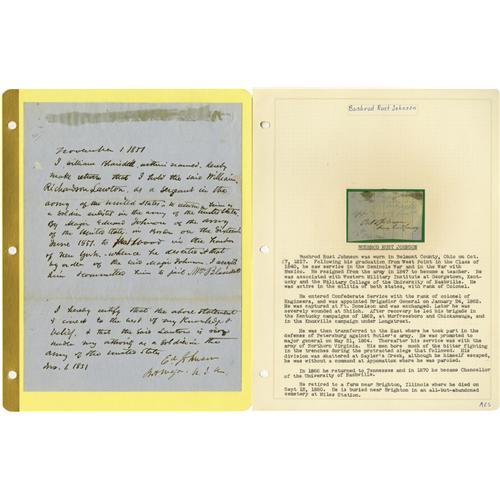 November 1, 1851
I William Blaisdell, within named, hereby
make return that I hold the said William
Richardson Lawton, as a sergeant in the
army of the United States,
a soldier enlisted in the army of the United States
By Major Edward Johnson of the army
of the United States, in Boston on the
June 1851. to in the
of New York, whence he deserted it that
by order of the said Major Johnson. I
him
I hereby certify that the above statement
is correct to the best of my knowledge &
belief, & that the said Lawton is now
under my authority as a soldier in the
army of the United States
Nov. 1, 1851
Bushrod Rust Johnson
BUSHROD RUST JOHNSON
Bushrod Rust Johnson was born in Belmont County, Ohio on Oct.
7, 1817. Following his graduation from West Point in the Class of
1840, he saw service in the Seminole War and in the War with
Mexico. He resigned from the army in 1847 to become a teacher. He
was associated with Western Military Institute at Georgetown, Kent-
ucky and the Military College of the University of Nashville. He
was active in the militia of both states, with rank of Colonel.
He entered Confederate Service with the rank of colonel of
Engineers, and was appointed Brigadier General on January 24, 1862.
He was captured at Ft. Donelson and was exchanged. Later he was
severely wounded at Shiloh. After recovery he led his brigade in
the Kentucky campaign of 1862, at Murfreesboro and Chickamauga, and
in the Knoxville campaign under Longstreet.
He was then transferred to the East where he took part in the
defense of Petersburg against Butler's army. He was promoted to
major general on May 21, 1864. Thereafter his service was with the
army of Northern Virginia. His men bore much of the bitter fighting
in the trenches during the protracted siege that followed. His
division was shattered at Sayler's Creek, although he himself escaped,
he was without a command at Appomattox where he was paroled.
In 1866 he returned to Tennessee and in 1870 he became Chancellor
of the University of Nashville.
He retired to a farm near Brighton, Illinois where he died on
Sept 12, 1880. He is buried near Brighton in an all-but-abandoned
cemetery at Miles Station.